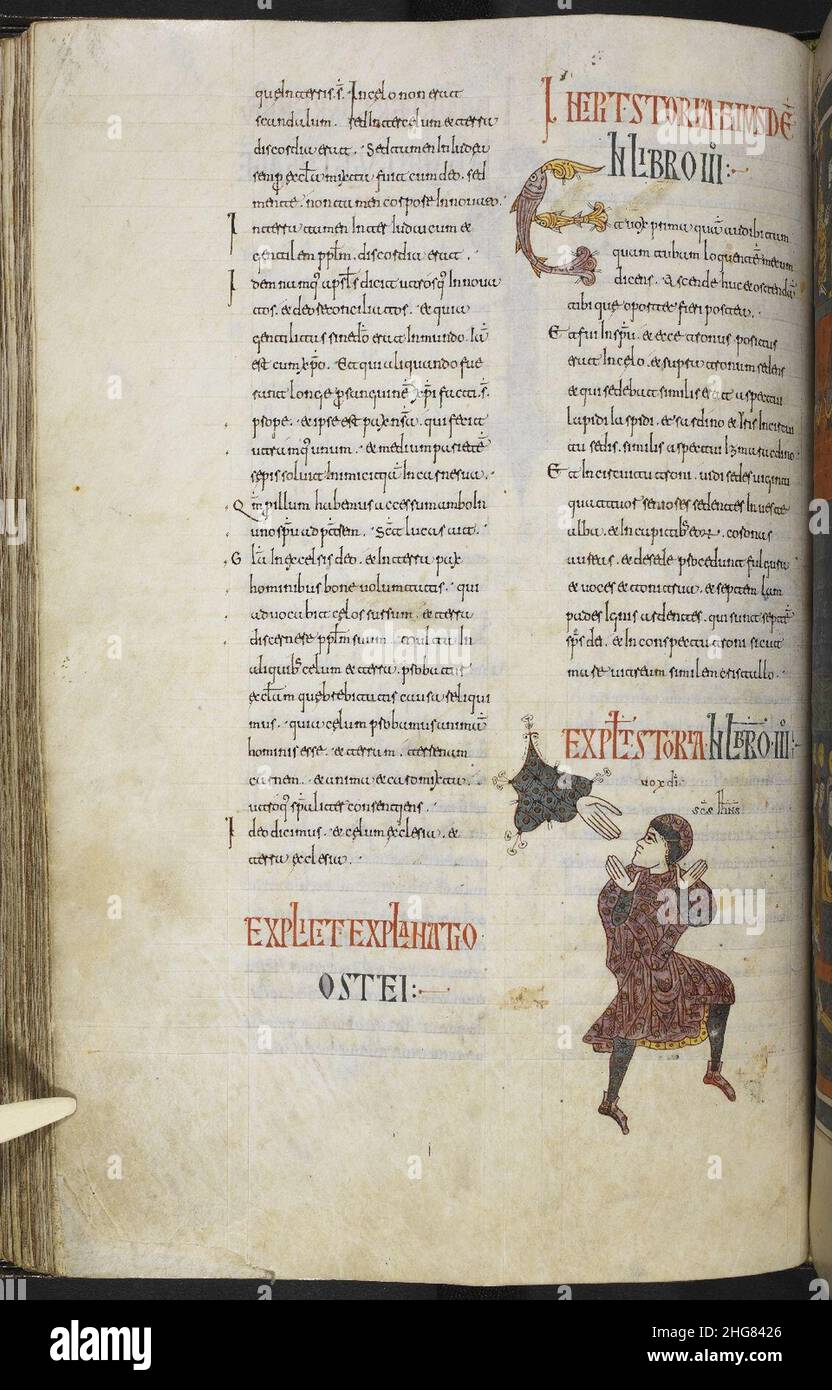 quę In terris s̅. In cęlo non erat
scandalum. sed Inter celum & terra
discordia erat. Sed tamen In Iudea
semp̲ ęcl̅a mixta fuit cum deo. sed
mente. non tamen corpore In nouo deo.
In terra tamen Inter Iudaicum &
gentilem pp̅lm. discordia erat.
Idem namq; apsl̅s dicit utrosq; In noua
tos. & deo reconciliatos. & quia
gentilitas sine d̅o erat In mundo. Ia̅
est cum xp̅o. Et qui aliquando fue
rant longe p̲ sanguine̅ xp̅i facti s̅.
prope. & ipse est pax nsa̅. qui fecit
utramq; unum. & medium pariete̅
sepis soluit Inimicitia̅ In carne sua.
Qm̅ p̲ illum habemus accessum ambo In
uno spu̅ ad patrem. Sc̅s lucas ait.
Gl̅a In excelsis deo. & In terra pax
hominibus bone volumtatis. qui
aduocabit celos sursum. & terra
discernere pp̅lm suum. Multa In
aliquib; celum & terra. probatus
ecl̅am quę brebitatis causa reliqui
mus. quia celum probamus anima̅
hominis esse. & terram. terrenam
carnem. & anima & caro mixta.
utrosq; sp̅aliter consentiens.
Ideo dicimus. & celum ęclesia. &
terra ęclesia.
EXPLICIT EXPLANATIO
OSTEI:
INCIPIT STORIA EIUSDE̅
IN LIBRO III:
Et uox prima qua̅ audibi tam
quam tubam loquente̅ mecum
dicens. Ascende huc & ostenda̅
tibi que oportet fieri postea.
Et fui In spu̅. & ecce tronus positus
erat In celo. & supra tronum sedens
& qui sedebat similis erat aspectui
lapidi Iaspidi. & sardino & Iris In circui
tu sedis. similis aspectui Izmaracdino
Et In circuitu troni. uidi sedes uiginti
quattuor seniores sedentes In ueste
alba. & In capitib; eor̅. coronas
aureas. & de sede procedunt fulgura
& uoces & tonitrua. & septem lam
pades Ignis ardentes. qui sunt septe̅
sps̅ dei. & In conspectu troni sicut
mare uitreum similem cristallo.
EXPLT̅ STORIA IN LB̅RO III:
uox di̅.
sc̅s Ihn̅s
alamy
Image ID: 2HG8426
www.alamy.com